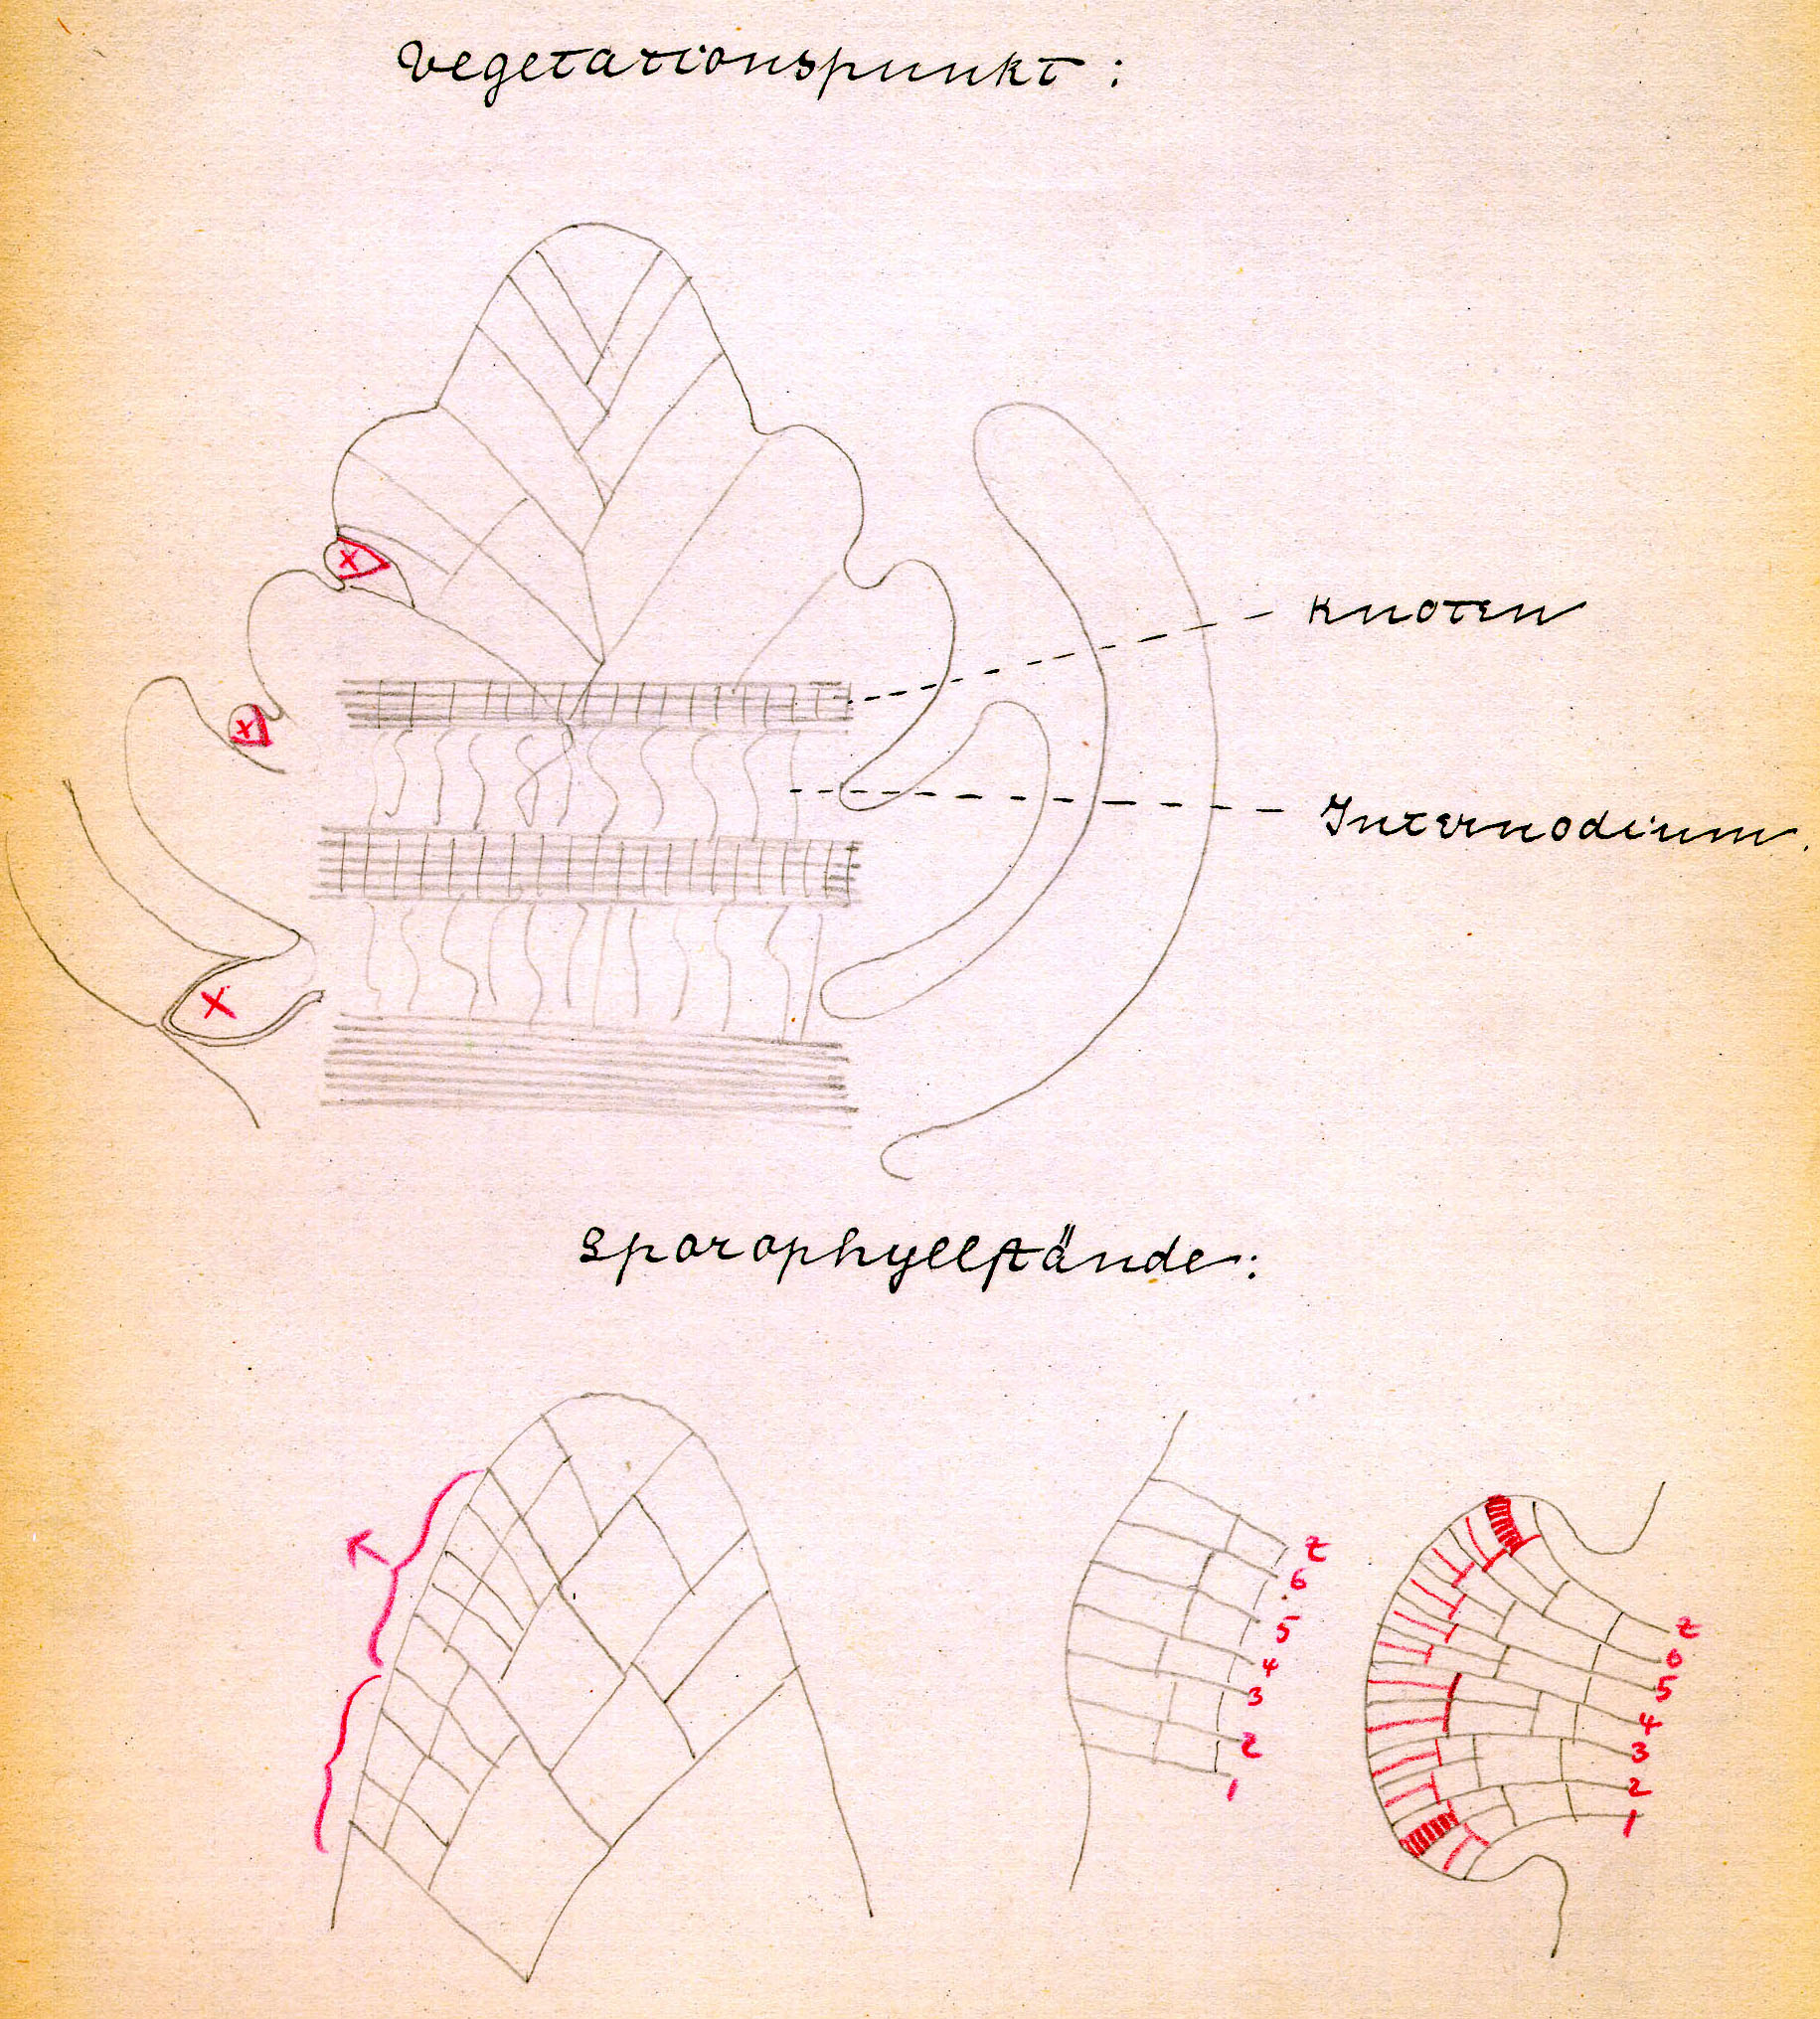 Vegetationspunkt:
Knoten
Internodium.
Sporophyllstände:
z
6
5
4
3
2
1
z
6
5
4
3
2
1